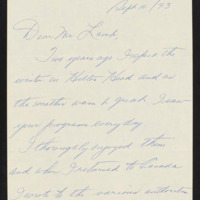 Sept 11/73
Dear Mr Lamb,
Two years ago I spent the
winter in Hilton Head and as
the weather wasn't good, I saw
your programs everyday.
I thoroughly enjoyed them
and when I returned to Canada
I wrote to the various authorities